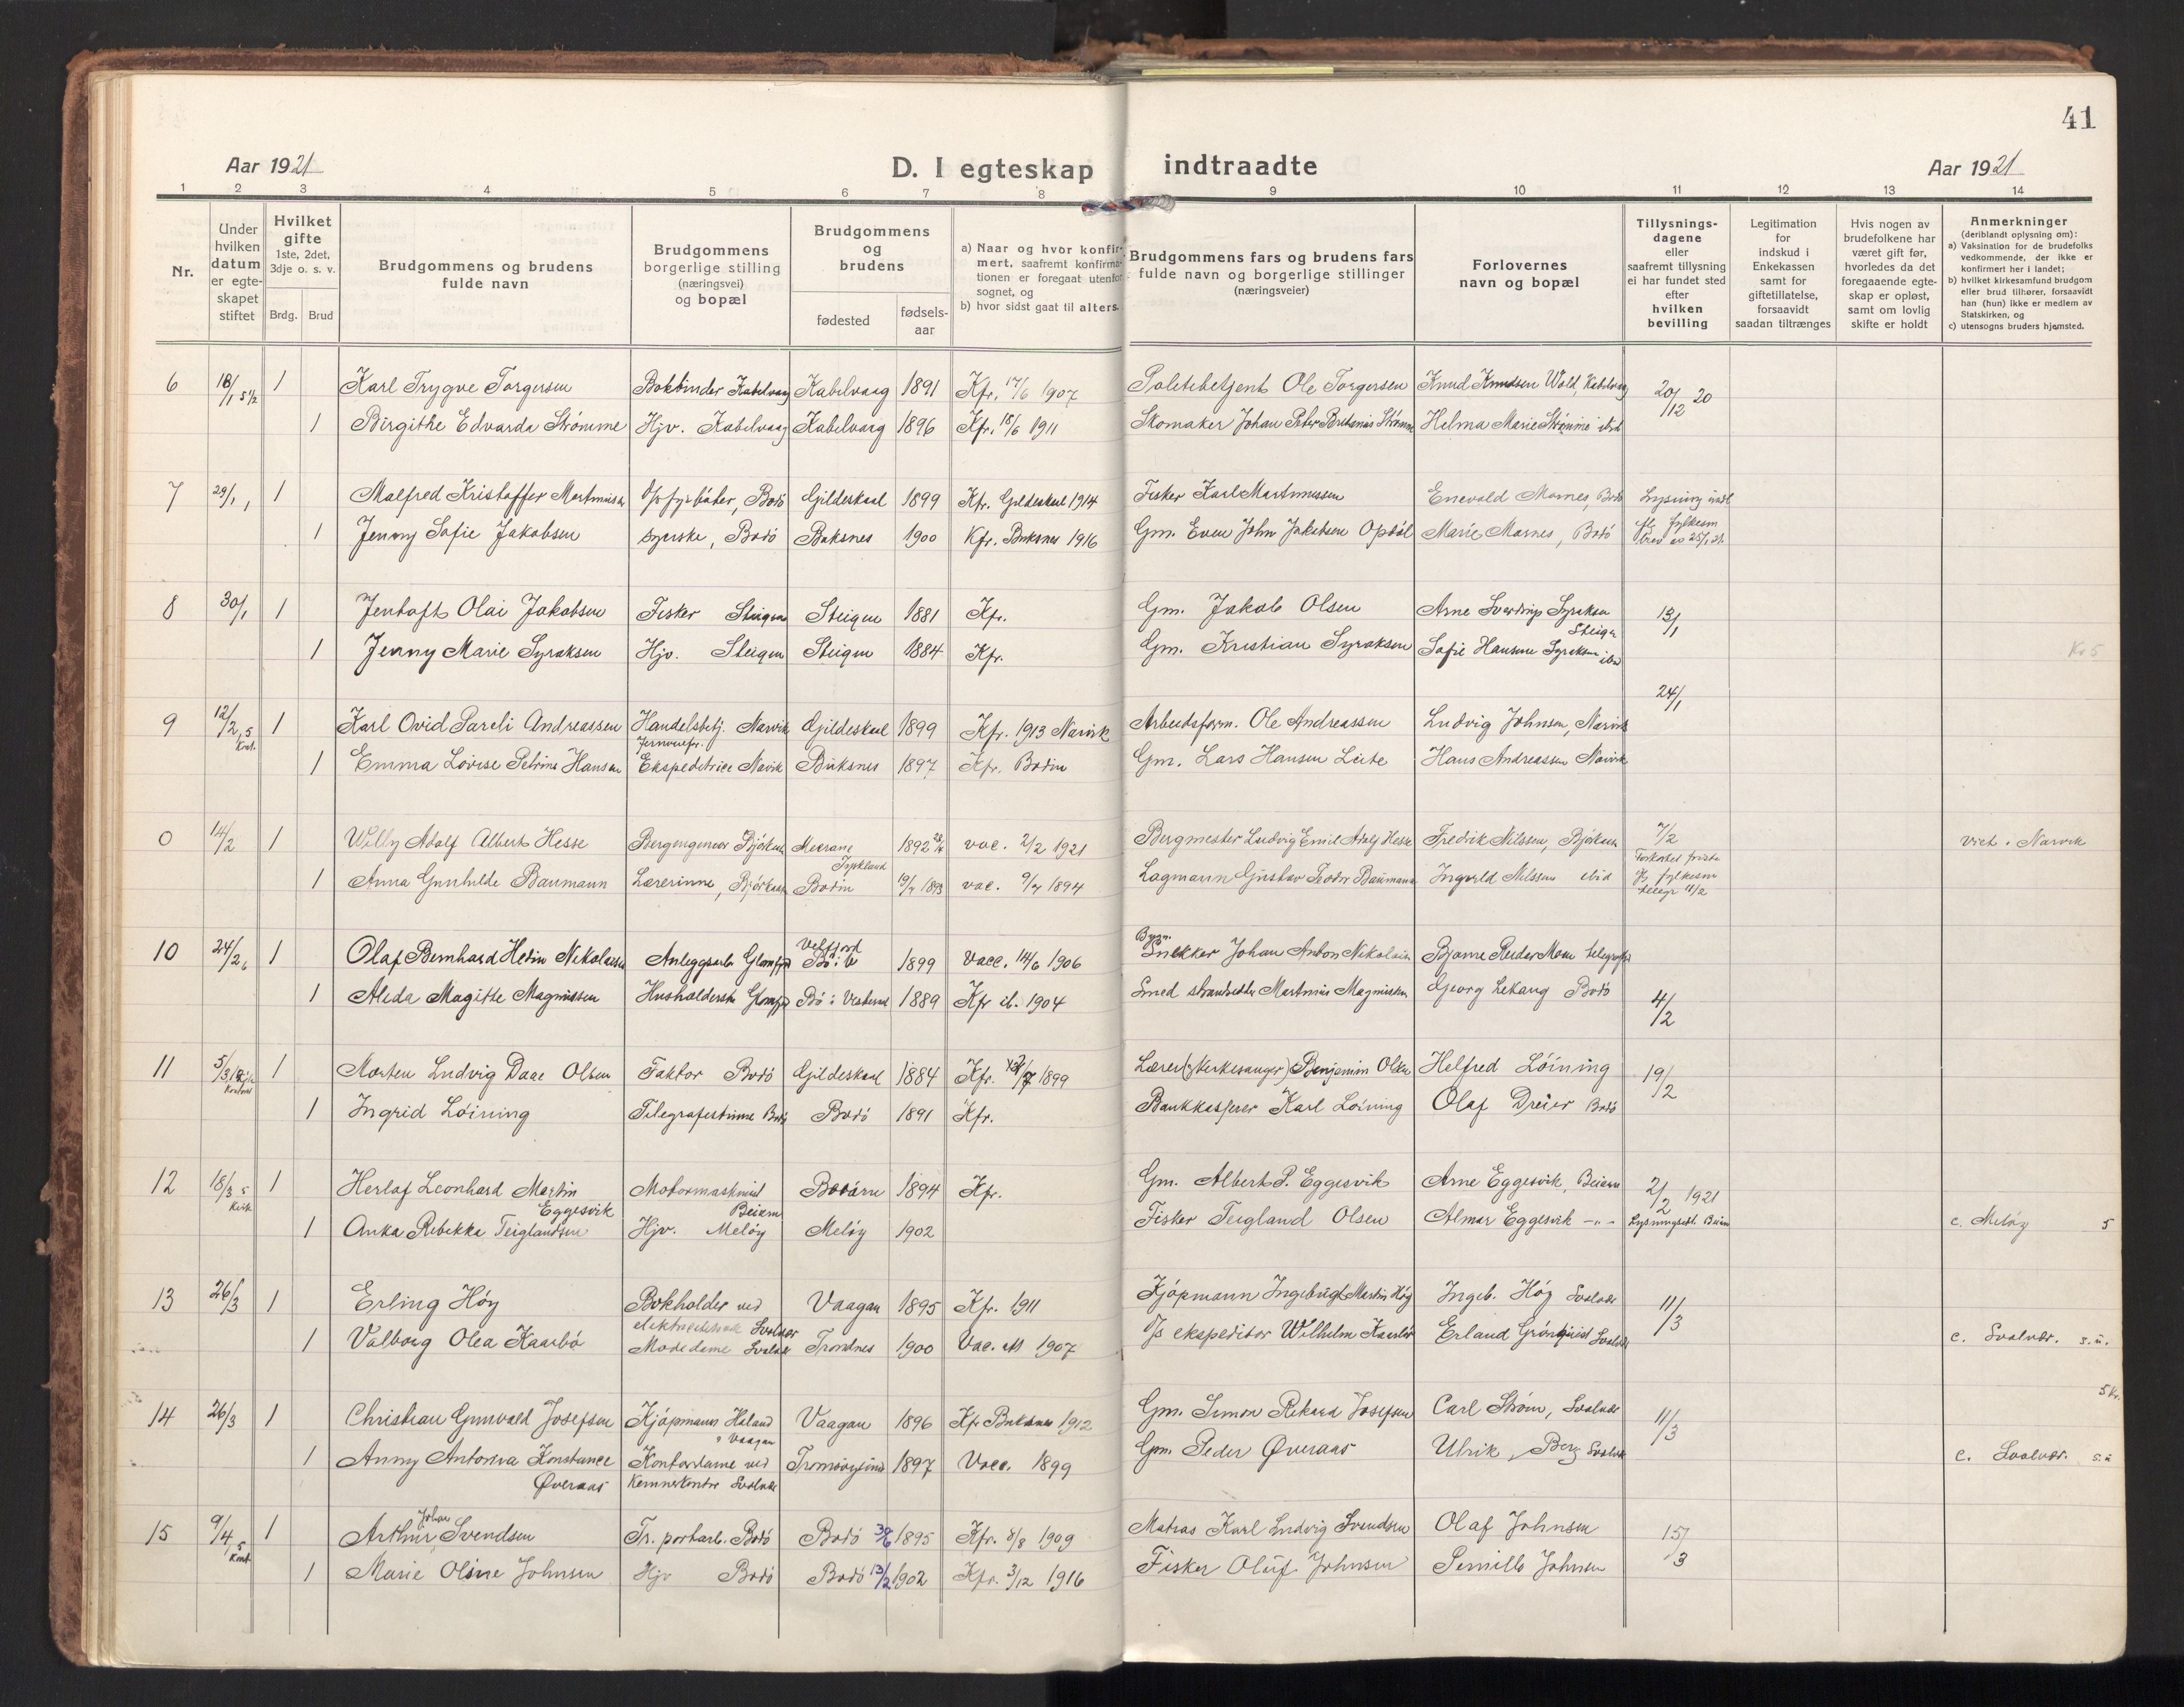 41
Aar 1921
D. I egteskap indtraadte
Aar 1921
1 2 3 4 5 6 7 8 9 10 11 12 13 14
Nr.
Under hvilken datum er egteskapet stiftet
Hvilket gifte 1ste, 2det, 3dje o. s. v.
Brdg. Brud
Brudgommens og brudens fulde navn
Brudgommens borgerlige stilling (næringsvei) og bopæl
Brudgommens og brudens
fødested
fødselsaar
a) Naar og hvor konfirmert, saafremt konfirmationen er foregaat utenfor sognet, og
b) hvor sidst gaat til alters.
Brudgommens fars og brudens fars fulde navn og borgerlige stillinger (næringsveier)
Forlovernes navn og bopæl
Tillysningsdagene eller saafremt tillysning ei har fundet sted efter hvilken bevilling
Legitimation for indskud i Enkekassen samt for giftetillatelse, forsaavidt saadan tiltrænges
Hvis nogen av brudefolkene har været gift før, hvorledes da det foregaaende egteskap er opløst, samt om lovlig skifte er holdt
Anmerkninger (deriblandt oplysning om):
a) Vaksination for de brudefolks vedkommende, der ikke er konfirmert her i landet;
b) hvilket kirkesamfund brudgom eller brud tilhører, forsaavidt han (hun) ikke er medlem av Statskirken, og
c) utensogns bruders hjemsted.
6 18/1 5½ 1 Karl Trygve Torgersen Bokbinder Kabelvaag Kabelvaag 1891 Kfr. 17/6 1907 Politibetjent Ole Torgersen Knud Knudsen Wold, Kabelvaag 20/12 20
1 Birgithe Edvarda Strømme Hjv. Kabelvaag Kabelvaag 1896 Kfr. 18/6 1911 Skomaker Johan Peter Strømme Helma Marie Strømme ibid
7 29/1 1 Malfred Kristoffer Martinussen fyrbøter, Bodø Gildeskaal 1899 Kfr. Gildeskaal 1914 Fisker Karl Martinussen Enevold Marnes, Bodø Lysning
1 Jenny Sofie Jakobsen syerske, Bodø Buksnes 1900 Kfr. Buksnes 1916 Gm. Even John Jakobsen Opdøl Marie Marnes, Bodø fylkesm brev av 25/1 21.
8 30/1 1 Jentoft Olai Jakobsen Fisker Steigen Steigen 1881 Kfr. Gm. Jakob Olsen Arne Sverdrup Syraksen Steigen 13/1
1 Jenny Marie Syraksen Hjv. Steigen Steigen 1884 Kfr. Gm. Kristian Syraksen Sofie Hansine Syraksen ibid Kr 5
24/1
9 12/2 5 Kont. 1 Karl Ovid Pareli Andreassen Handelsbetj. Narvik Gildeskaal 1899 Kfr. 1913 Narvik Arbeidsform. Ole Andreassen Ludvig Johnsen, Narvik
1 Emma Lovise Petrine Hansen Ekspeditrice Narvik Buksnes 1897 Kfr. Bodin Gm. Lars Hansen Leite Hans Andreassen Narvik
0 14/2 1 Willy Adolf Albert Hesse Bergingeniør Bjørkaasen Meerane Tyskland 1892 vac. 2/2 1921 Bergmester Ludvig Emil Adolf Hesse Fredrik Nilssen, Bjørkaasen 7/2 viet i Narvik
1 Anna Gunhilde Baumann Lærerinne, Bjørkaasen Bodin 19/7 1893 vac. 9/7 1894 Lagmann Gustav Teodor Baumann Ingvald Nilssen ibid Forkortet frist fylkesm telegr 11/2
10 24/2 6 1 Olaf Bernhard Hedin Nikolaisen Anleggsarb. Glomfjord Velfjord 1899 vacc. 14/6 1906 Bygn. Snekker Johan Anton Nikolaisen Bjarne Reider Moen telegrafist
1 Alida Magitte Magnussen Husholderske Glomfjord Bø i Vesteraal 1889 Kfr ib. 1904 Smed strandsidder Martinus Magnussen Georg Lekang Bodø 4/2
11 5/3 1 Morten Ludvig Daae Olsen Faktor Bodø Gildeskaal 1884 Kfr. 1899 Lærer (Kirkesanger) Benjamin Olsen Helfred Löining 19/2
1 Ingrid Löining Telegrafistinne Bodø Bodø 1891 Kfr. Bankkasserer Karl Löining Olaf Dreier Bodø
12 18/3 5 Kirk. 1 Herlaf Leonhard Martin Eggesvik Motormaskinist Beiarn Beiarn 1894 Kfr. Gm. Albert P. Eggesvik Arne Eggesvik, Beiarn 2/2 1921
1 Anka Rebekka Teiglandsen Hjv. Meløy Meløy 1902 Fisker Teigland Olsen Almar Eggesvik -"- Lysningsatt. Beiarn c. Meløy 5
13 26/3 1 Erling Høy Bokholder ved Svolvær Vaagan 1895 Kfr. 1911 Kjøpmann Ingebrigt Martin Høy Ingeb. Høy Svolvær 11/3
1 Valborg Olea Kaarbø Modedame Svolvær Trondnes 1900 Vac. att 1907 D/s ekspeditør Wilhelm Kaarbø Erland Grönquist Svolvær c. Svolvær. s.u.
5 kr.
14 26/3 1 Christian Gunvald Josefsen Kjøpmann Holand i Vaagan Vaagan 1896 Kfr Buksnes 1912 Gm. Simon Rikard Josefsen Carl Strøm, Svolvær 11/3
1 Anny Antonia Konstance Øveraas Kontordame ved Kemnerkontor Svolvær Tromsøysund 1897 Vacc. 1899 Gm. Peder Øveraas Ulrik Berg Svolvær c. Svolvær. s.u
15 9/4 5 Kont. 1 Arthur Johan Svendsen Tr. portarb. Bodø Bodø 30/6 1895 Kfr. 8/8 1909 Matros Karl Ludvig Svendsen Olaf Johnsen 15/3
1 Marie Oline Johnsen Hjv Bodø Bodø 13/2 1902 Kfr. 3/12 1916 Fisker Oluf Johnsen Pernille Johnsen